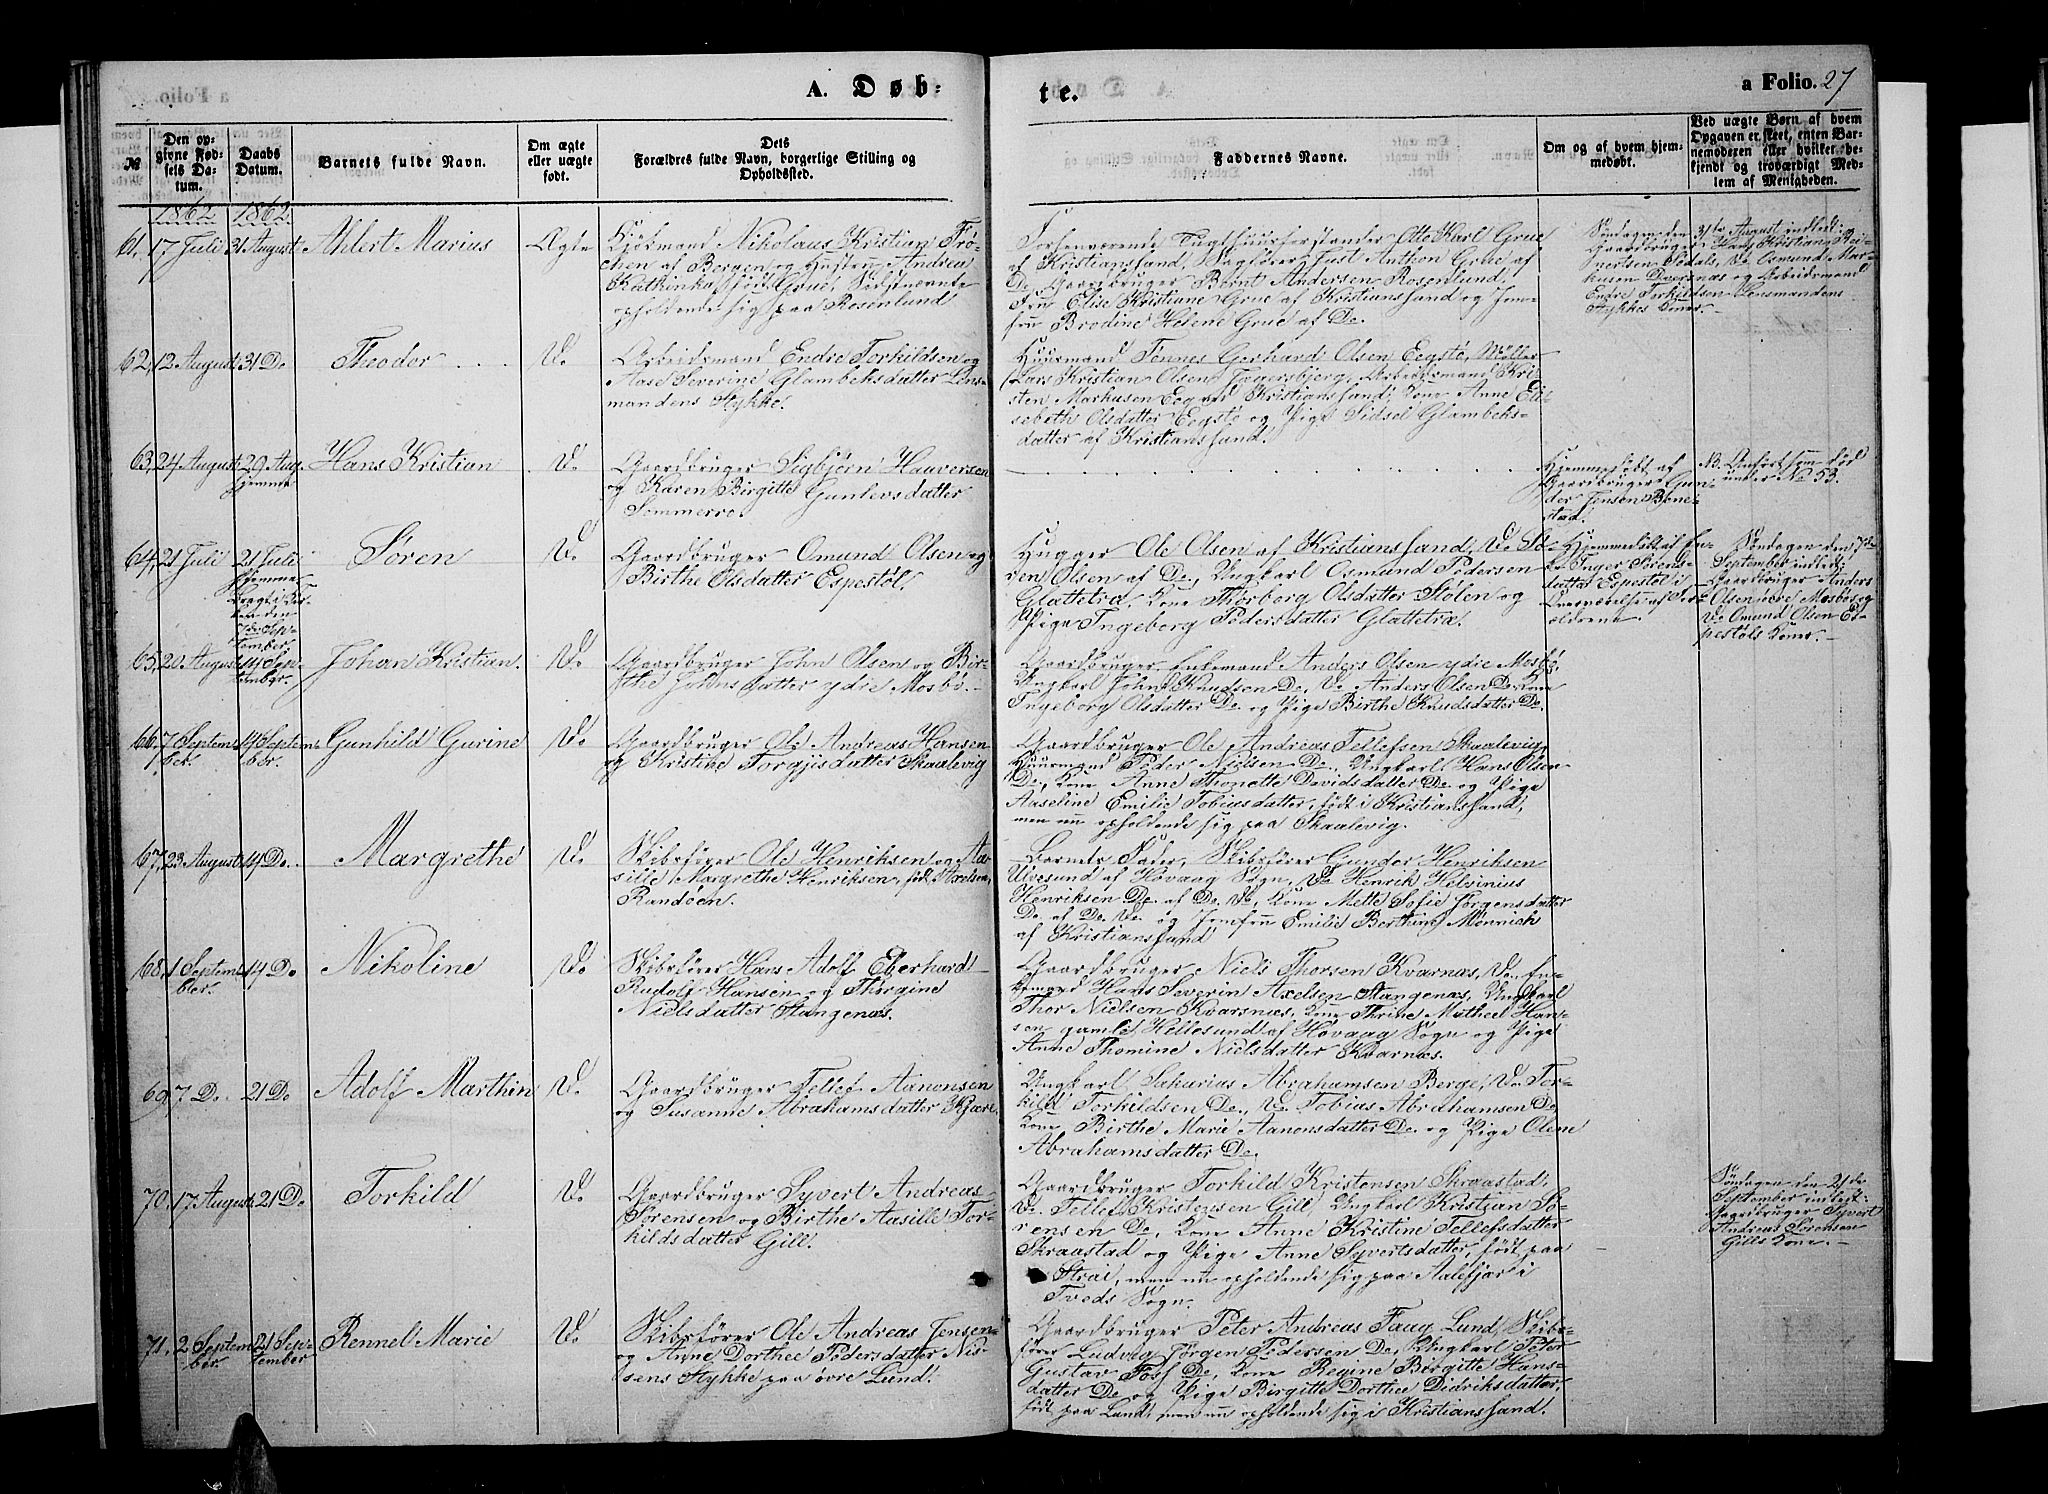 A. Døb-
te.
a Folio. 27
№
Den op-
givne Fød-
sels Da-
tum.
Daabs
Datum.
Barnets fulde Navn.
Om ægte
eller uægte
født.
Dets
Forældres fulde Navn, borgerlige Stilling og
Opholdssted.
Faddernes Navne.
Om og af hvem hjem-
medøbt.
Ved uægte Børn af hvem
Opgaven er skeet, enten Bar-
nemoderen eller hvilket be-
kjendt og troværdigt Med-
lem af Menigheden.
1862 1862
61, 17 Juli 31 August Ahlert Marius Ægte
Kjøbmand Nikolaus Kristian Frø-
chen af Bergen og Hustru Andrea
Kathinka, født Grue, Sidstnævnte
opholdende sig paa Rosenlund
Forhenværende Tugthuusforstander Otto Karl Grue
af Kristianssand, Bagfører Just Anthon Grue af
Do, Gaardbruger Bernt Andersen Rosenlund,
Fru Elise Kristiane Grue af Kristianssand og Jom-
fru Brodine Helene Grue af Do.
Søndagen den 31te August indled:
Gaardbruger Hans Kristian Rei-
nertsen Ødals, Do Osmund Mar-
kusen Dversnæs og Arbeidsmand
Endre Torkildsen Lensmandens
Stykkes Koner.
62, 12 August 31 Do Theodor Do
Arbeidsmand Endre Torkildsen og
Aase Severine Glambeksdatter Lens-
mandens Stykke.
Huusmand Tønnes Gerhard Olsen Eegstø, Møller
Lars Kristian Olsen Jægersbjerg, Arbeidsmand Kri-
sten Markusen Eeg ved Kristianssand, Kone Anne Eli-
sebeth Olsdatter Eegstø og Pige Sidsel Glambeks-
datter af Kristianssand.
63, 24 August 29 Aug. Hans Kristian Do
hjemme
Gaardbruger Sigbjørn Haaversen
og Karen Birgitte Gunlevsdatter
Sømmerro.
Hjemmedøbt af
Gaardbruger Gun-
der Jensen Bene-
stad.
NB. Anført som død
under No 53.
64, 21 Juli 21 Juli Søren Do
hjemme
Bragt i Kir-
ken den
7de Sep-
tember.
Gaardbruger Omund Olsen og
Birthe Olsdatter Espestøl.
Hugger Ole Olsen af Kristianssand, Do Sø-
ren Olsen af Do, Ungkarl Osmund Pedersen
Glattetra, Kone Thorborg Olsdatter Stølen og
Pige Ingeborg Pedersdatter Glattetra.
Hjemmedøbt af En-
ke Inger Sørens-
datter Espestøl i
Overværelse af For-
ældrene.
Søndagen den 7de
September indled:
Gaardbruger Anders
Olsen øvre Mosbø og
Do Omund Olsen Es-
pestøls Koner.
65, 20 August 14 Sep- Johan Kristian. Do
tember.
Gaardbruger John Olsen og Bir-
the Johnsdatter ydre Mosbø.
Gaardbruger, Enkemand Anders Olsen ydre Mosbø,
Ungkarl John Knudsen Do, Do Anders Olsen Do, Kone
Ingeborg Olsdatter Do. og Pige Birthe Knudsdatter Do.
66, 7 Septem- 14 Septem- Gunhild Gurine Do
ber. ber.
Gaardbruger Ole Andreas Hansen
og Kristine Torgjusdatter Skaalevig
Gaardbruger Ole Andreas Tellefsen Skaalevig,
Huusmand Peder Nielsen Do., Ungkarl Hans Olsen
Do, Kone Anne Thonette Davidsdatter Do. og Pige
Aaseline Emilie Tobiasdatter, født i Kristianssand,
men nu opholdende sig paa Skaalevig.
67, 23 August 14 Do. Margrethe Do
Skibsfører Ole Henriksen og Aa-
sille Margrethe Henriksen, født Axelsen,
Randøen.
Barnets Fader, Skibsfører Gunder Henriksen
Ulvesund af Høvaag Sogn, Do Henrik Helvinius
Henriksen Do. af Do. Do., Kone Mette Sofie Jørgensdatter
Do. af Do. Do. og Jomfru Emilie Berthine Mønnich
af Kristianssand
68, 1 Septem- 14 Do Nikoline Do
ber.
Skibsfører Hans Adolf Eberhard
Rudolf Hansen og Thorgine
Nielsdatter Stangenæs.
Gaardbruger Niels Thorsen Kvarnæs, Do. En-
kemand Hans Severin Axelsen Stangenæs, Ungkarl
Thor Nielsen Kvarsnæs, Kone Thrine Mathea Han-
sen gamle Hellesund af Høvaag Sogn og Pige
Anne Thomine Nielsdatter Kvarnæs.
69, 7 Do. 21 Do Adolf Marthin Do
Gaardbruger Tellef Aanonsen
og Susanne Abrahamsdatter Kjære.
Ungkarl Sakarias Abrahamsen Berge, Do Tor-
kild Torkildsen Do., Do. Tobias Abrahamsen Do,
Kone Birthe Marie Aanonsdatter Do. og Pige Olene
Abrahamsdatter Do.
70, 17 August 21 Do Torkild Do
Gaardbruger Syvert Andreas
Sørensen og Birthe Aasille Tor-
kildsdatter Gill.
Gaardbruger Torkild Kristensen Skraastad,
Do. Tellef Kristensen Gill, Ungkarl Kristian Sø-
rensen Do, Kone Anne Kristine Tellefsdatter
Skraastad og Pige Anne Syvertsdatter, født paa
Strai, men nu opholdende sig paa Aalefjær i
Tveds Sogn.
Søndagen den 21de
September indled:
Gaardbruger Syvert
Andreas Sørensen
Gills Kone.
71, 2 Septem- 21 Sep- Rennel Marie Do
ber. tember
Skibsfører Ole Andreas Jensen
og Anne Dorthee Pedersdatter Nil-
sens Stykke paa øvre Lund.
Gaardbruger Peter Andreas Faug Lund, Skibs-
fører Ludvig Jørgen Pedersen Do, Ungkarl Peter
Gustav Foss Do, Kone Regine Birgitte Hans-
datter Do og Pige Birgitte Dorthee Didriksdatter,
født paa Lund, men nu opholdende sig i Kristianssand.